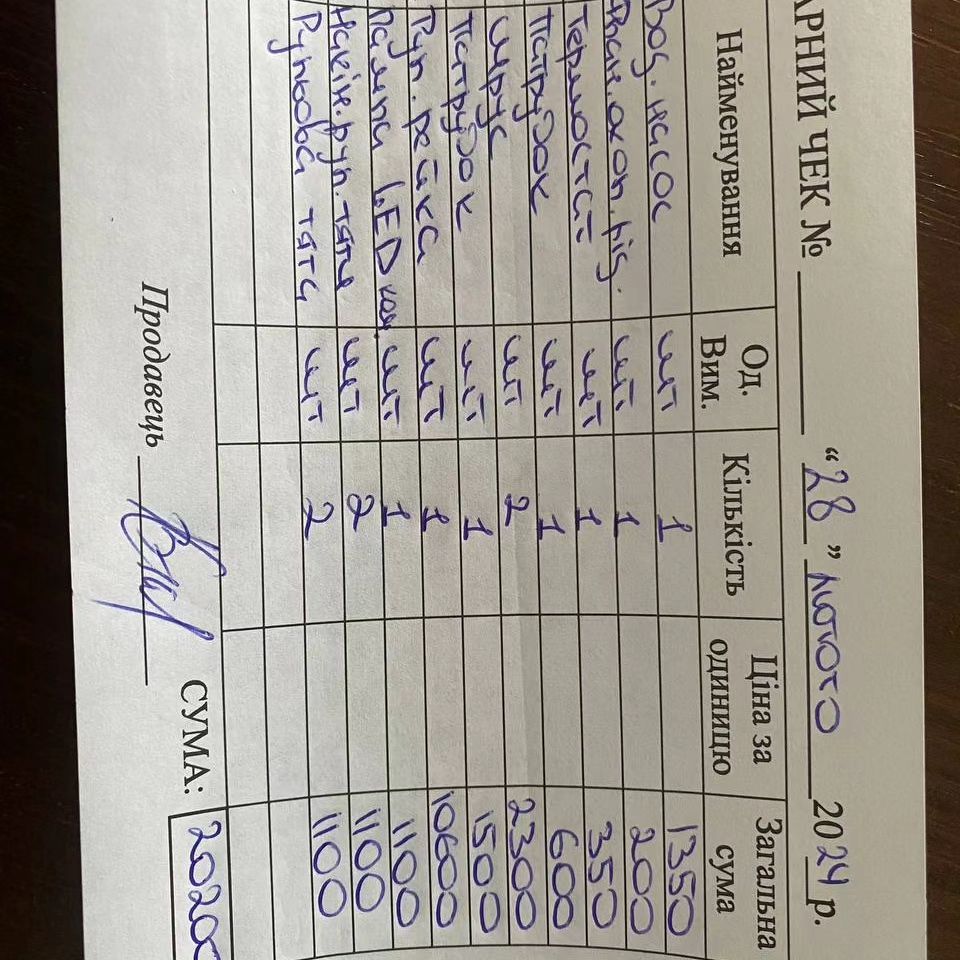 АРНИЙ ЧЕК № “28” лютого 2024 р.
Найменування Од. Вим. Кількість Ціна за одиницю Загальна сума
Вод. насос шт 1 1350
рід. шт 1 200
Термостат шт 1 350
Патрубок шт 1 600
шрус шт 2 2300
Патрубок шт 1 1500
Рул. рейка шт 1 10600
Лампа LED шт 1 1100
Након. рул. тяги шт 2 1100
Рульова тяга шт 2 1100
Продавець СУМА: 20200